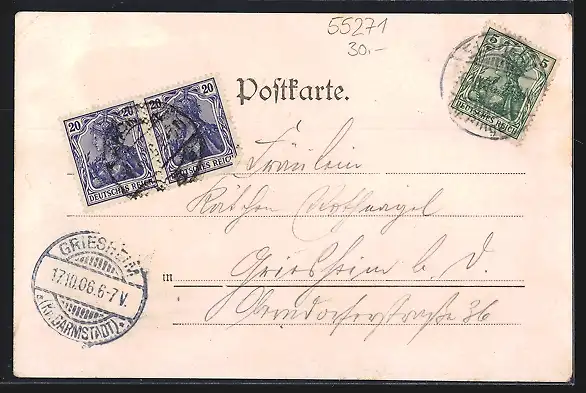 55271
30.-
5 5
DEUTSCHES REICH
Postkarte.
20 20
DEUTSCHES REICH
20 20
DEUTSCHES REICH
Fräulein
Käthen Rothnagel
in Griesheim b. D.
Oberndorferstraße 36
GRIESHEIM
17.10.06.6-7V.
*(Kr. DARMSTADT)*